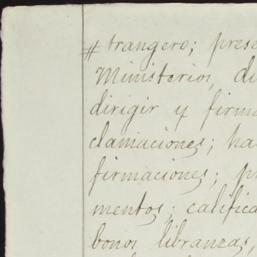 # trangero; prese
Ministerior, di
dirigir y firma
clamaciones; ha
firmaciones; p
mentos; califica
bonor libranzas,